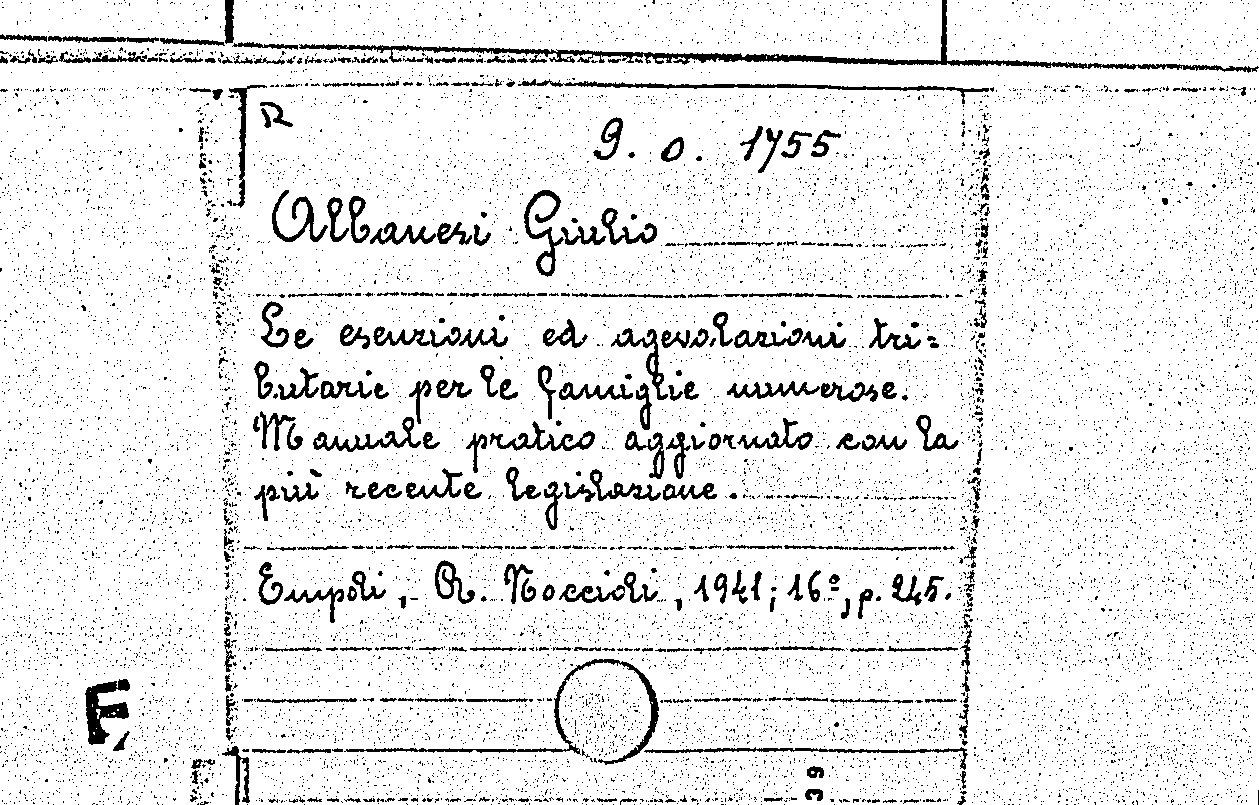 R
9. 0. 1755
Albanesi Giulio
Le esenzioni ed agevolazioni tri=
butarie per le famiglie numerose.
Manuale pratico aggiornato con la
più recente legislazione.
Empoli, R. Noccioli, 1941; 16º, p. 245.
F,
39